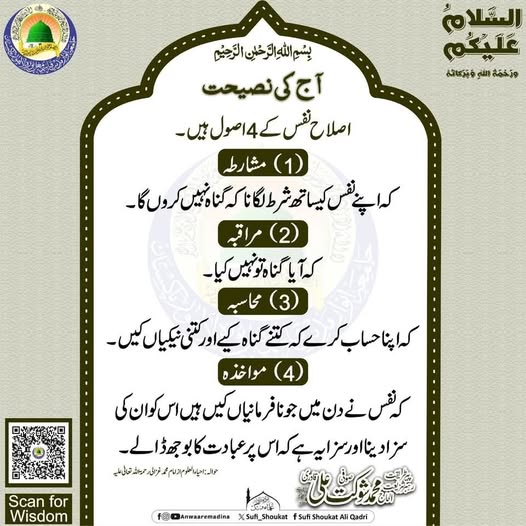 السلام
علیکم
ورحمۃ اللہ وبرکاتہ
بِسْمِ اللهِ الرَّحْمٰنِ الرَّحِيْمِ
آج کی نصیحت
اصلاح نفس کے 4 اصول ہیں۔
(1) مشارطہ
کہ اپنے نفس کیساتھ شرط لگانا کہ گناہ نہیں کروں گا۔
(2) مراقبہ
کہ آیا گناہ تو نہیں کیا۔
(3) محاسبہ
کہ اپنا حساب کرے کہ کتنے گناہ کیے اور کتنی نیکیاں کیں۔
(4) مواخذہ
کہ نفس نے دن میں جو نافرمانیاں کیں ہیں اس کو ان کی
سزا دینا اور سزا یہ ہے کہ اس پر عبادت کا بوجھ ڈالے۔
حوالہ: احیاء العلوم از امام محمد غزالی رحمۃ اللہ تعالیٰ علیہ
محمد شوکت علی
Scan for
Wisdom
Anwaaremadina
Sufi_Shoukat
Sufi Shoukat Ali Qadri